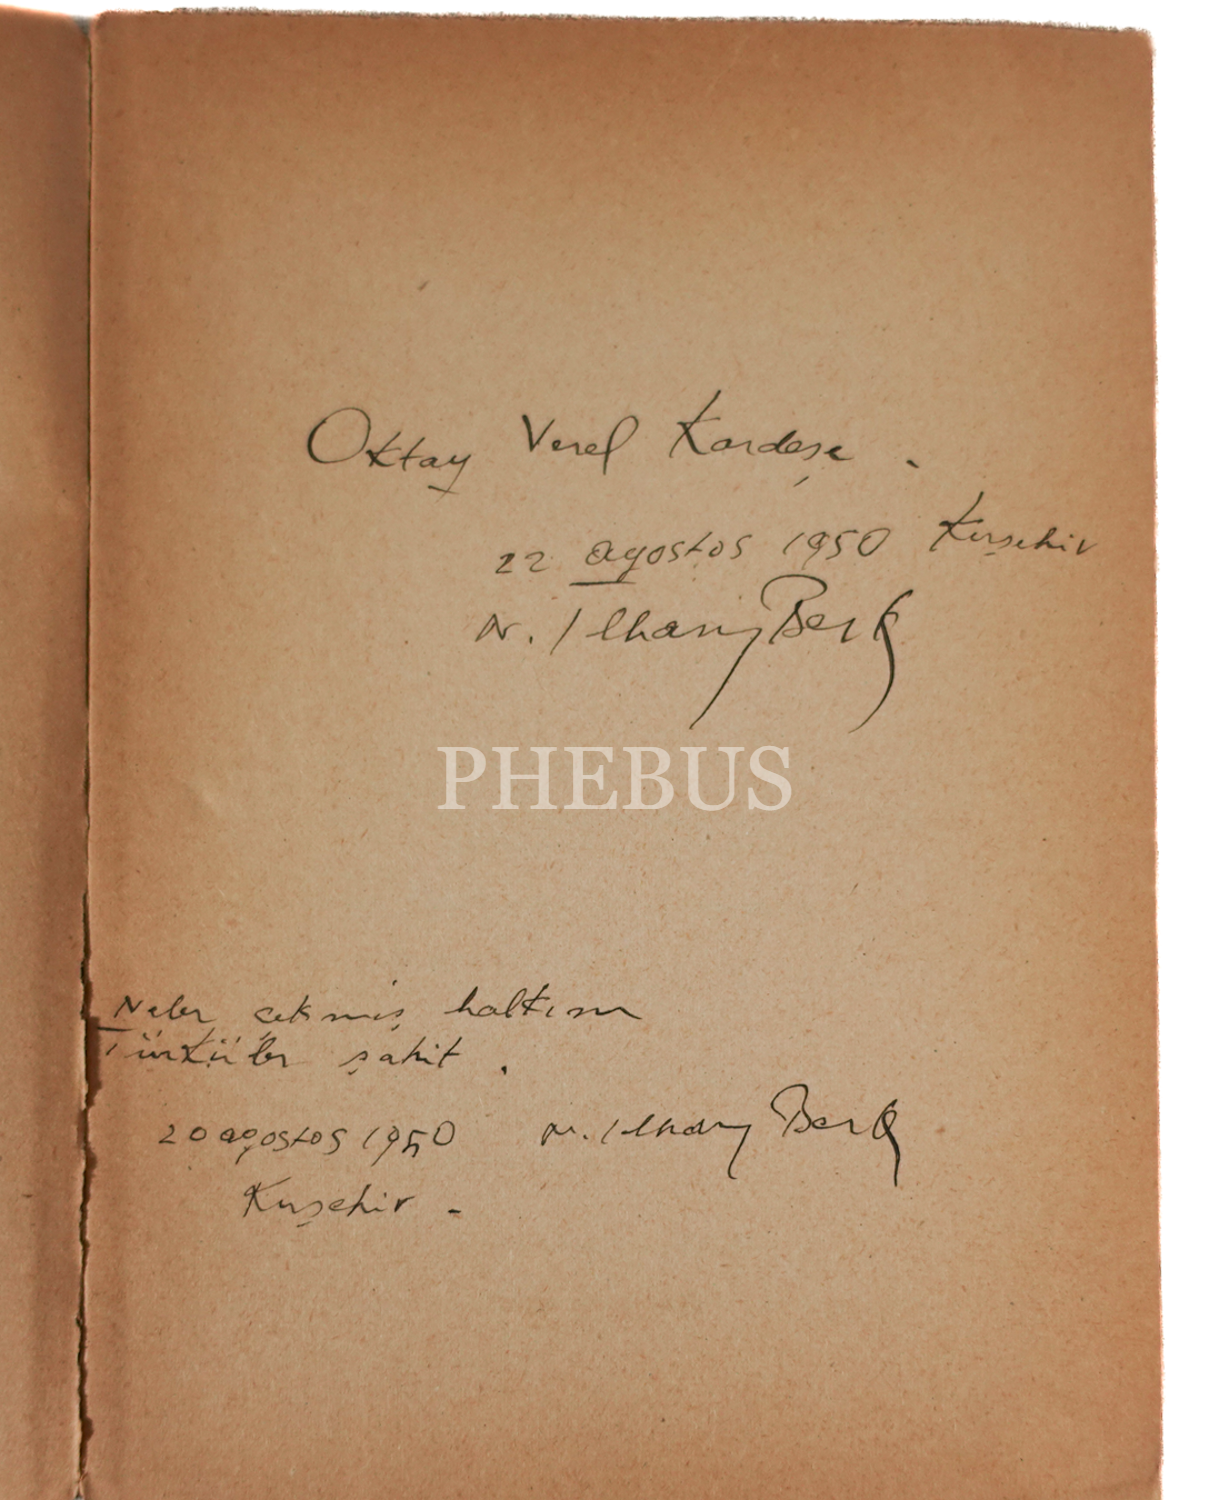 Oktay Verel Kardeşe.
22 ağostos 1950 Kırşehir
N. İlhan Berk
PHEBUS
Neler çekmiş halkım
Türküler şahit.
20 agostos 1950 N. İlhan Berk
Kırşehir.